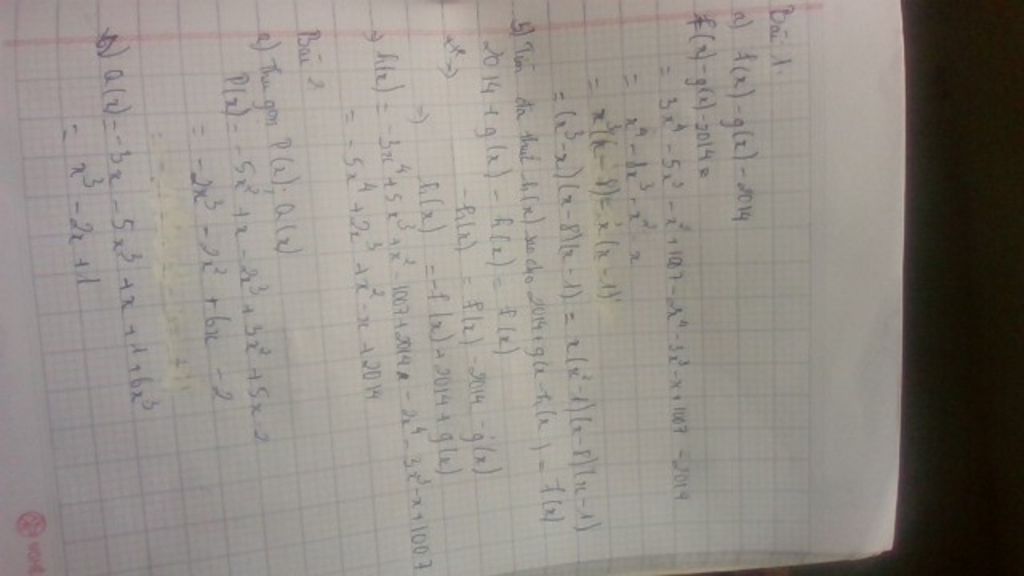 Bài 1.
a) f(x) - g(x) - 2014
f(x) - g(x) - 2014 =
= 3x⁴ - 5x³ - x² + 1007 - 2x⁴ - 3x³ - x + 1007 - 2014
= x⁴ - 8x³ - x² - x
= x³(x - 8) - x(x - 1)
= (x³ - x)(x - 8)(x - 1) = x(x² - 1)(x - 8)(x - 1)
b) Tìm đa thức h(x) sao cho 2014 + g(x - h(x) = f(x)
2014 + g(x) - h(x) = f(x)
=> - h(x) = f(x) - 2014 - g(x)
=> h(x) = -f(x) + 2014 + g(x)
=> h(x) = -3x⁴ + 5x³ + x² - 1007 + 2014 - 2x⁴ - 3x³ - x + 1007
= -5x⁴ + 2x³ + x² - x + 2014
Bài 2
a) Thu gọn P(x). Q(x)
P(x) = -5x² + x - 2x³ + 3x² + 5x - 2
= -2x³ - 2x² + 6x - 2
b) Q(x) = -3x - 5x³ + x + 1 + 6x³
= x³ - 2x + 1